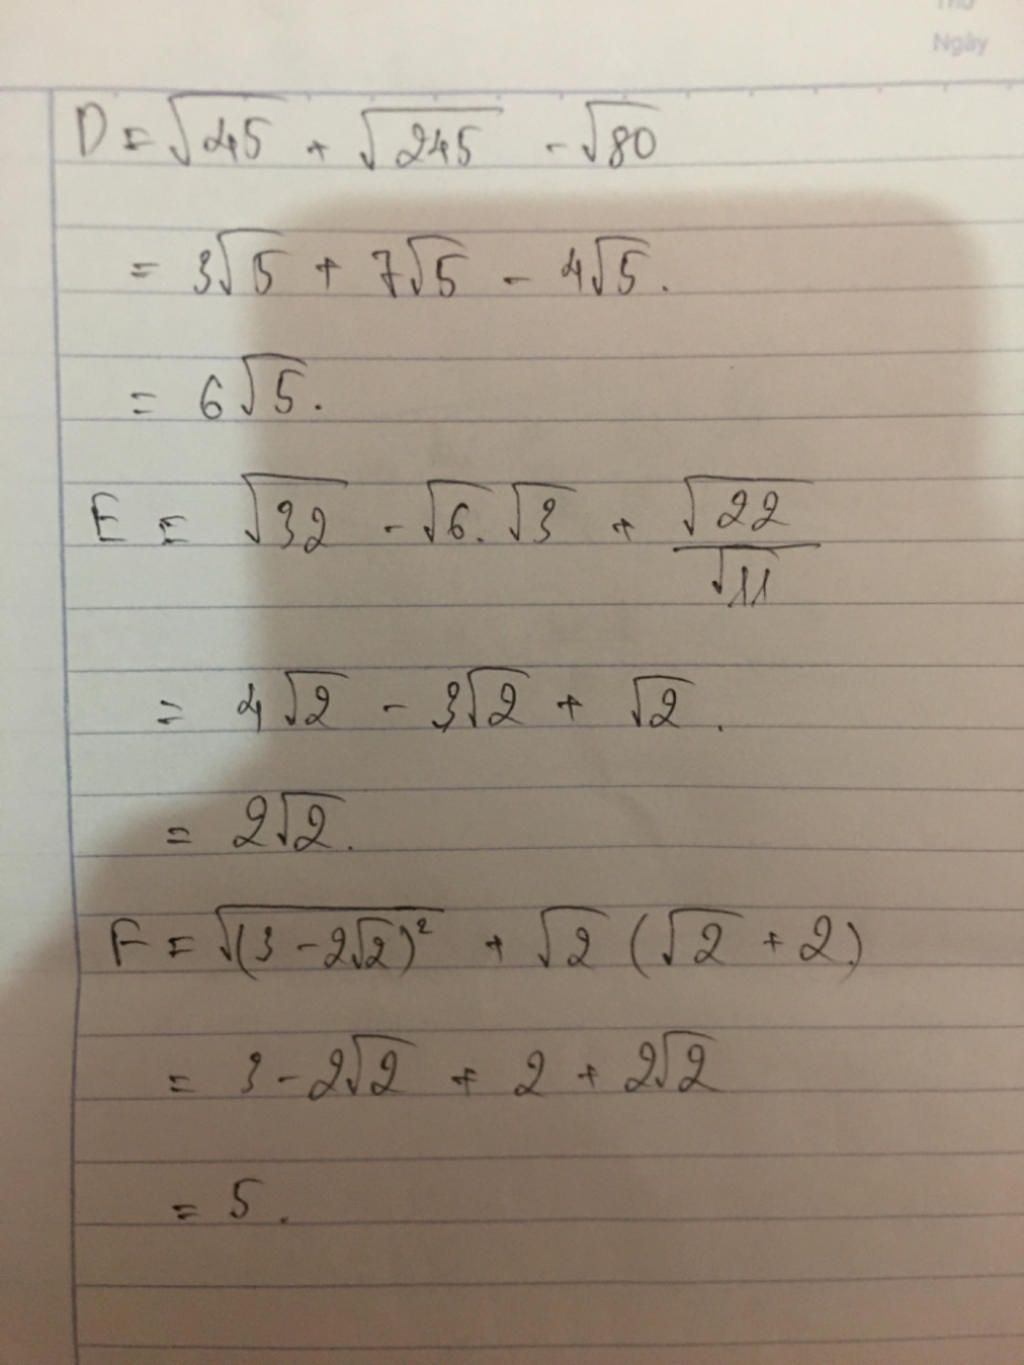 Thứ
Ngày
D = √45 + √245 - √80
= 3√5 + 7√5 - 4√5.
= 6√5.
E = √32 - √6.√3 + √22/√11
= 4√2 - 3√2 + √2.
= 2√2.
F = √(3-2√2)² + √2(√2+2)
= 3-2√2 + 2 + 2√2
= 5.